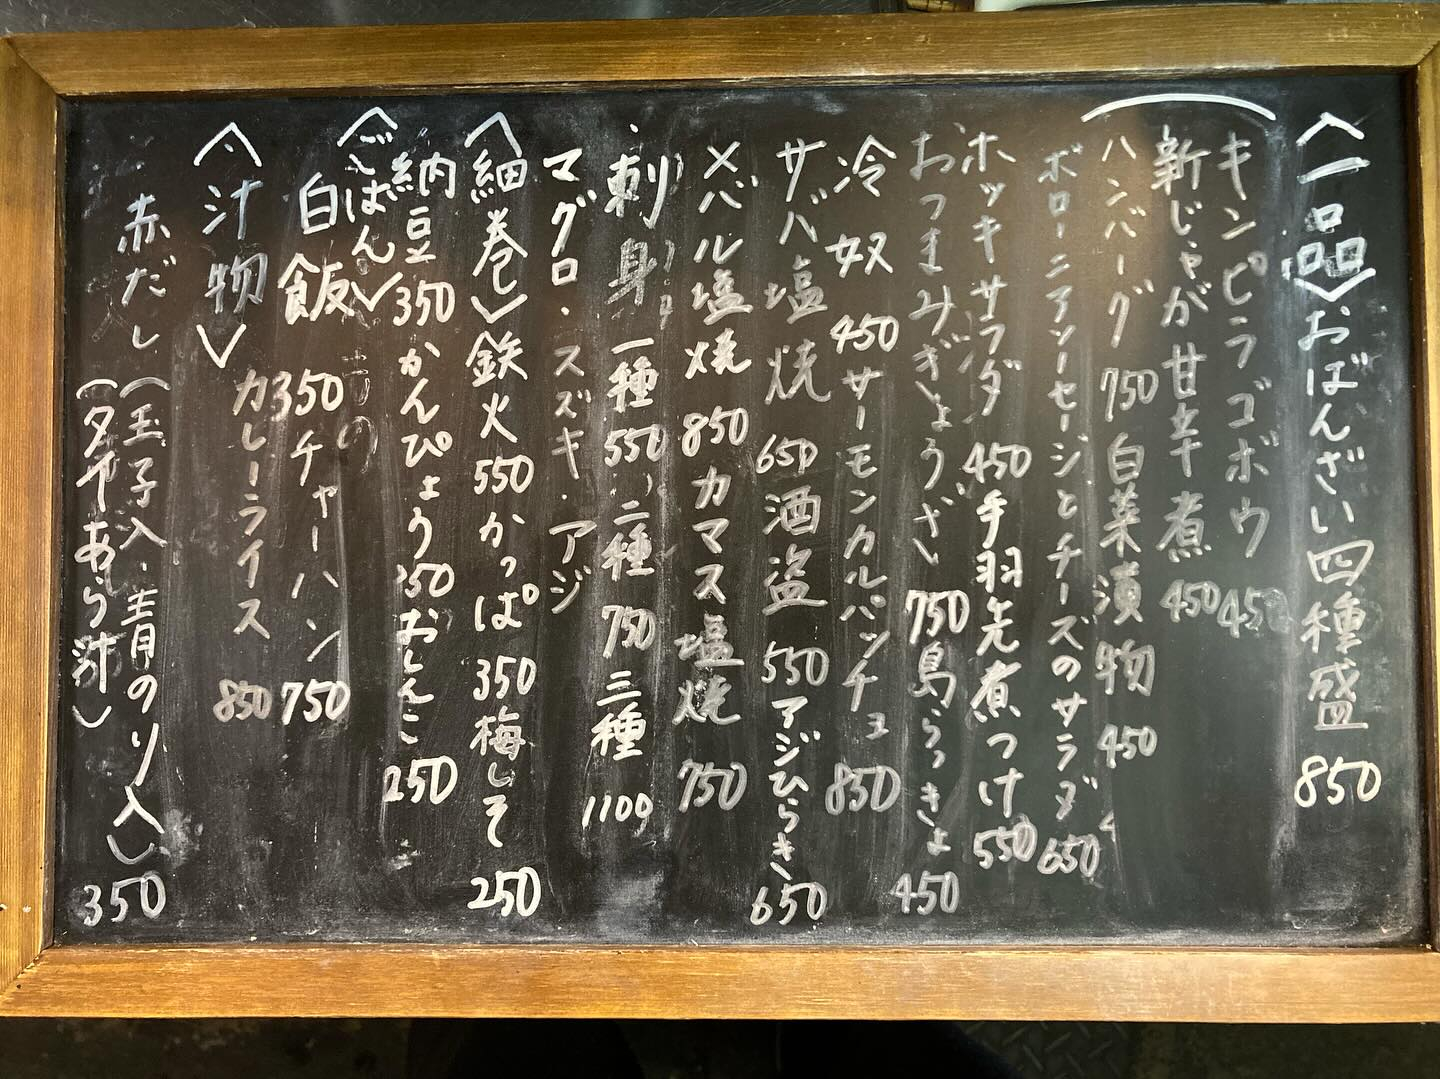 〈一品〉おばんざい四種盛 850
キンピラゴボウ 450
新じゃが甘辛煮 450
ハンバーグ 750 白菜漬物 450
ボローニアソーセージとチーズのサラダ 650
ホッキサラダ 450 手羽先煮つけ 550
おつまみぎょうざ 750 島らっきょ 450
冷奴 450 サーモンカルパッチョ 850
サバ塩焼 650 酒盗 550 アジひらき 650
メバル塩焼 850 カマス塩焼 750
刺身 一種 550、二種 750 三種 1100
マグロ・スズキ・アジ
〈細巻〉鉄火 550 かっぱ 350 梅しそ 250
納豆 350 かんぴょう 350 おしんこ 250
〈ごはん〉
白飯 350 チャーハン 750
カレーライス 850
〈汁物〉
赤だし（玉子入・青のり入）350
（タヤあら汁）